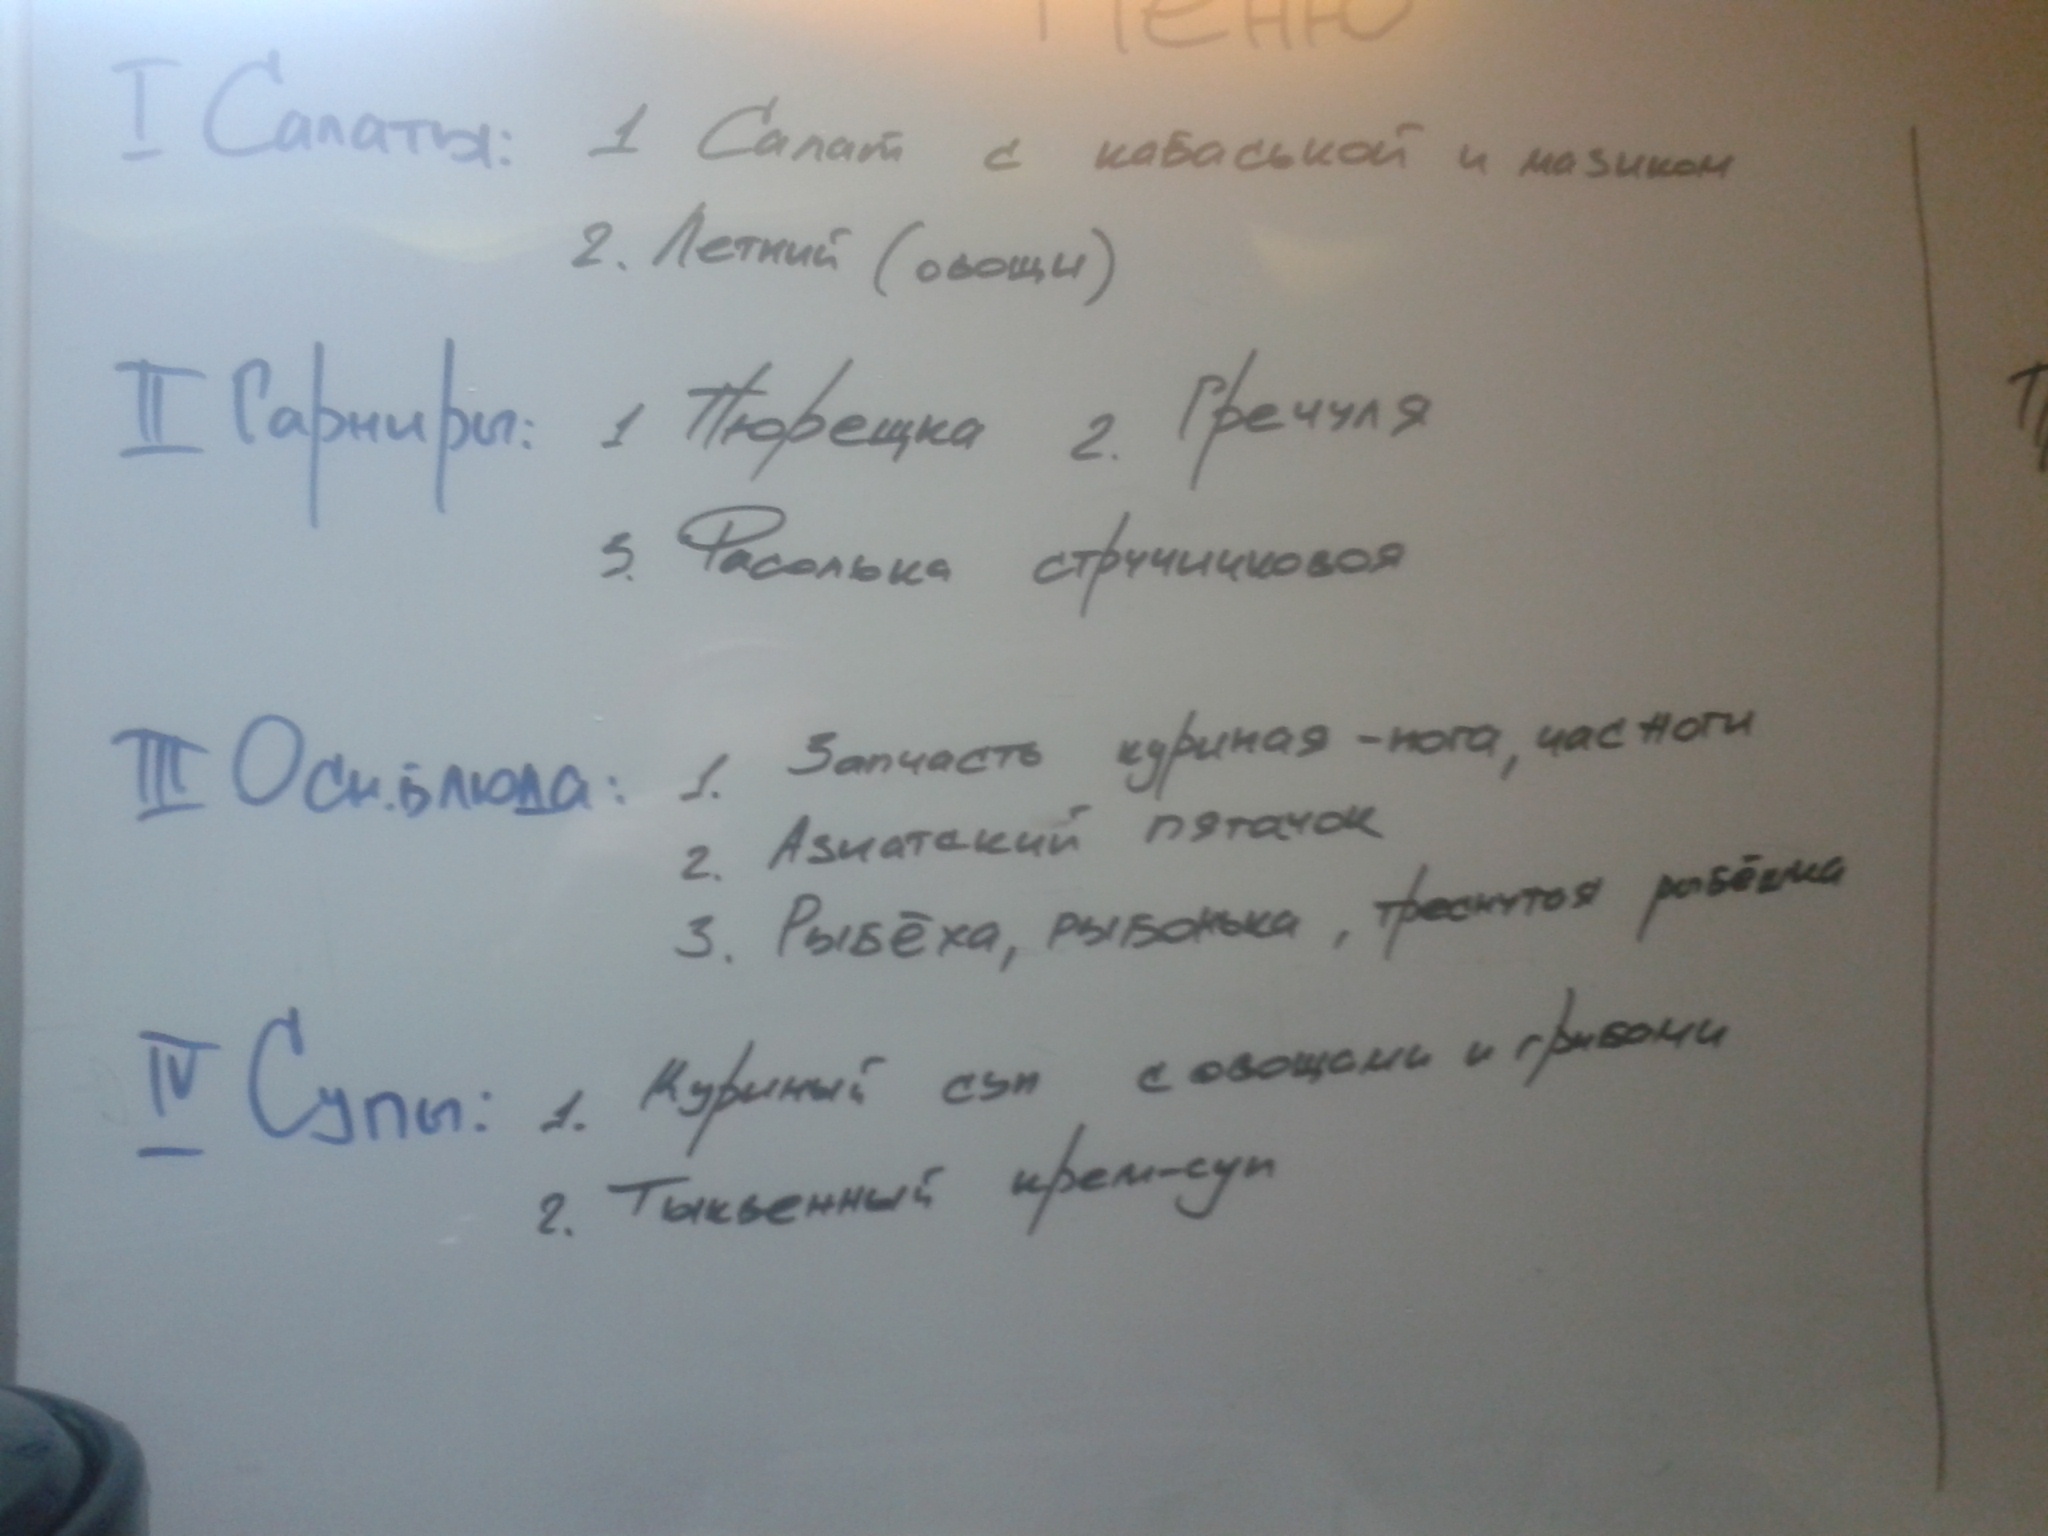 Меню
I Салаты: 1 Салат с кабаськой и мазиком
2. Летний (овощи)
II Гарниры: 1 Пюрещка 2. Гречуля
3. Фасолька стручичковоя
III Осн.блюда: 1. Запчасть куриная - нога, час ноги
2. Азиатский пятачок
3. Рыбёха, рыбонька, треснутья рыбёшка
IV Супы: 1. Куриный суп с овощами и грибами
2. Тыквенный крем-суп